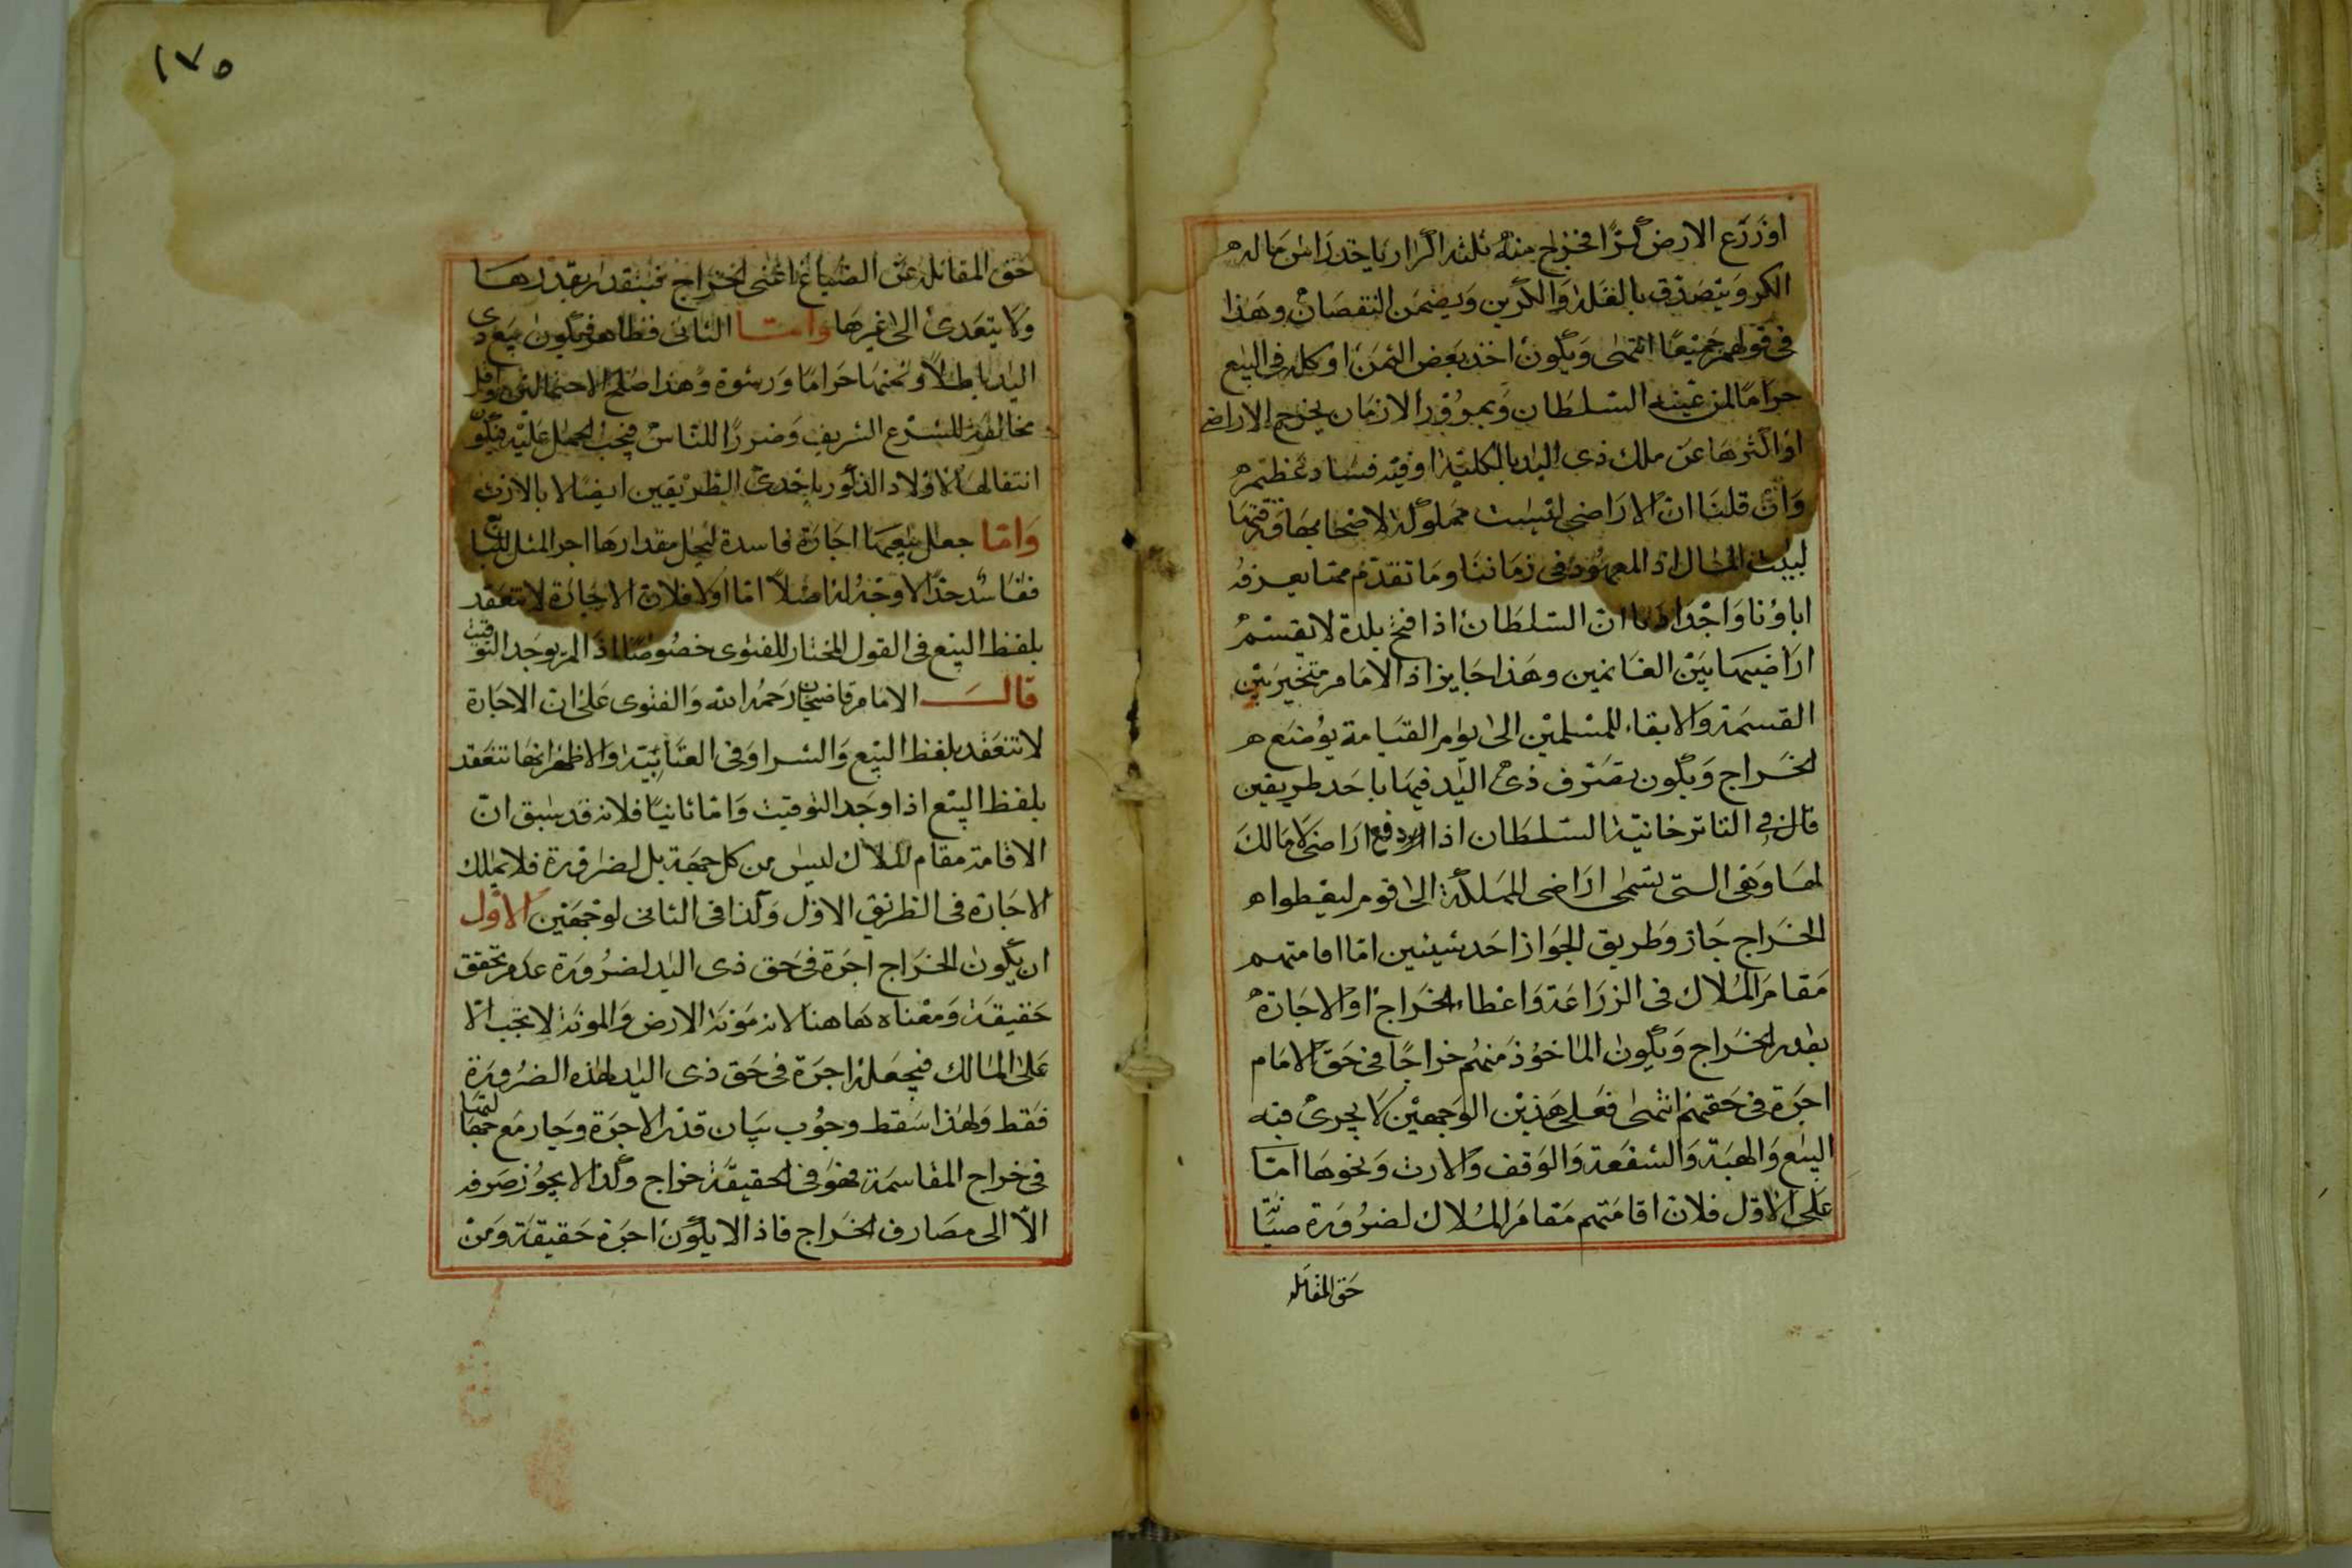 او زرع الارض كرًا فخرج منه ثلثه اكرار ياخد راس ماله
الكر ويتصدق بالفضل والكرين ويضمن النقصان وهذا
فى قولهم جميعًا انتهى ويكون اخذ بعض الثمن او كله فى البيع
حرامًا لمن عينه السلطان وبمرور الازمان يخرج الاراضى
او اكثرها عن ملك ذى اليد بالكلية وفيه فساد عظيم
وان قلنا ان الاراضى ليست مملوكة لاصحابها ورقبتها
لبيت المال اذ المعهود فى زماننا وما تقدم مما يعرفه
اباؤنا واجدادنا ان السلطان اذا فتح بلدة لا يقسم
اراضيها بين الغانمين وهذا جايز اذ الامام متخير بين
القسمة والابقاء للمسلمين الى يوم القيامة يوضع
الخراج ويكون تصرف ذى اليد فيها باحد طريقين
قال فى التاترخانية السلطان اذا دفع اراضى لا مالك
لها وهى التى تسمى اراضى المملكة الى قوم ليعطوا
الخراج جاز وطريق الجواز احد شيئين اما اقامتهم
مقام الملاك فى الزراعة واعطاء الخراج او الاجارة
بقدر الخراج ويكون الماخوذ منهم خراجًا فى حق الامام
اجرة فى حقهم انتهى فعلى هذين الوجهين لا يجرى فيه
البيع والهبة والشفعة والوقف والارث ونحوها اما
على الاول فلان اقامتهم مقام الملاك لضرورة صيانة
حق المقاتلة
١٧٥
حق المقاتلة عن الضياع اعنى الخراج فيتقدر بقدرها
ولا يتعدى الى غيرها واما الثانى فظاهر فيكون بيع ذى
اليد باطلاً وثمنها حرامًا ورشوة وهذا اصلح الاحتمالين واقل
مخالفة للشرع الشريف وضررًا للناس فيجب الحمل عليه فيكون
انتقالها لاولاد الذكور باحدى الطريقين ايضًا لا بالارث
واما جعل بيعها اجارة فاسدة ليحل مقدارها اجر المثل للبايع
ففاسد جدًا لا وجه له اصلاً اما اولا فلان الاجارة لا تنعقد
بلفظ البيع فى القول المختار للفتوى خصوصًا اذا لم يوجد التوقيت
قال الامام قاضيخان رحمه الله والفتوى على ان الاجارة
لا تنعقد بلفظ البيع والشرا وفى العتابية والاظهر انها تنعقد
بلفظ البيع اذا وجد التوقيت واما ثانيًا فلانه قد سبق ان
الاقامة مقام الملاك ليس من كل جهة بل لضرورة فلا يملك
الاجارة فى الطريق الاول وكذا فى الثانى لوجهين الاول
ان يكون الخراج اجرة فى حق ذى اليد لضرورة عدم تحقق
حقيقته ومعناه هاهنا لانه مؤنة الارض والمونة لا تجب الا
على المالك فيجعل اجرة فى حق ذى اليد لهذه الضرورة
فقط ولهذا سقط وجوب بيان قدر الاجرة وجاز مع جهالتها
فى خراج المقاسمة فهو فى الحقيقة خراج ولذا لا يجوز صرفه
الا الى مصارف الخراج فاذا لا يكون اجرة حقيقة ومن